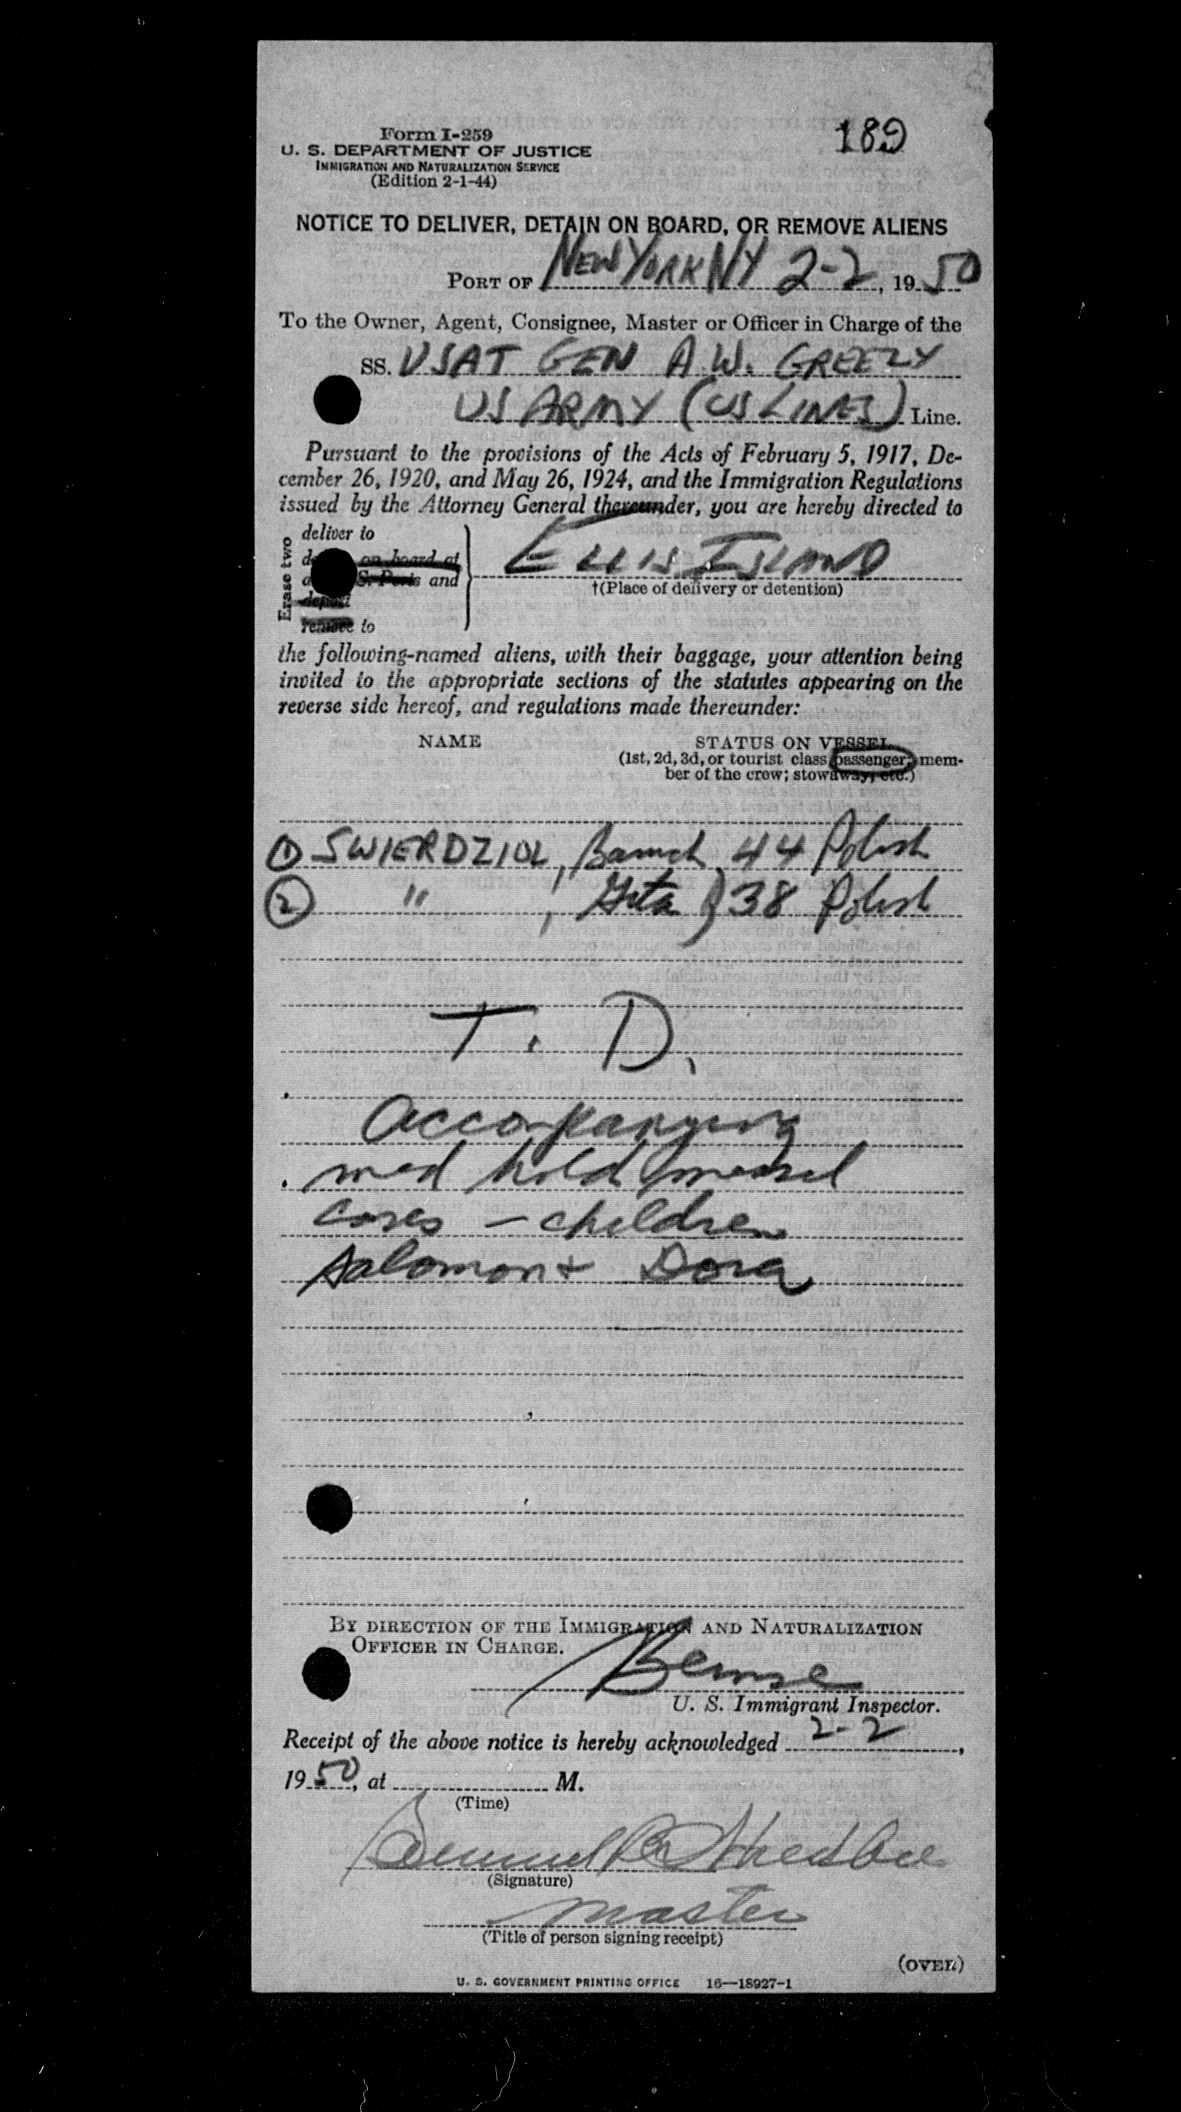 189
Form I-259
U. S. DEPARTMENT OF JUSTICE
IMMIGRATION AND NATURALIZATION SERVICE
(Edition 2-1-44)
NOTICE TO DELIVER, DETAIN ON BOARD, OR REMOVE ALIENS
PORT OF NEW YORK NY 2-2, 1950
To the Owner, Agent, Consignee, Master or Officer in Charge of the
SS. USAT GEN A.W. GREELY
US ARMY (US LINES) Line.
Pursuant to the provisions of the Acts of February 5, 1917, De-
cember 26, 1920, and May 26, 1924, and the Immigration Regulations
issued by the Attorney General thereunder, you are hereby directed to
Erase two
deliver to
on board at
S. Ports and
deport
remove to
ELLIS ISLAND
†(Place of delivery or detention)
the following-named aliens, with their baggage, your attention being
invited to the appropriate sections of the statutes appearing on the
reverse side hereof, and regulations made thereunder:
NAME STATUS ON VESSEL
(1st, 2d, 3d, or tourist class passenger; mem-
ber of the crew; stowaway, etc.)
① SWIERDZIOL, Baruch, 44 Polish
② " , Gita, 38 Polish
T. D.
accompanying
med hold measel
cases - children
Salomon + Dora
BY DIRECTION OF THE IMMIGRATION AND NATURALIZATION
OFFICER IN CHARGE.
U. S. Immigrant Inspector.
Receipt of the above notice is hereby acknowledged 2-2,
1950, at M.
(Time)
(Signature)
master
(Title of person signing receipt)
(OVER)
U. S. GOVERNMENT PRINTING OFFICE 16—18927-1